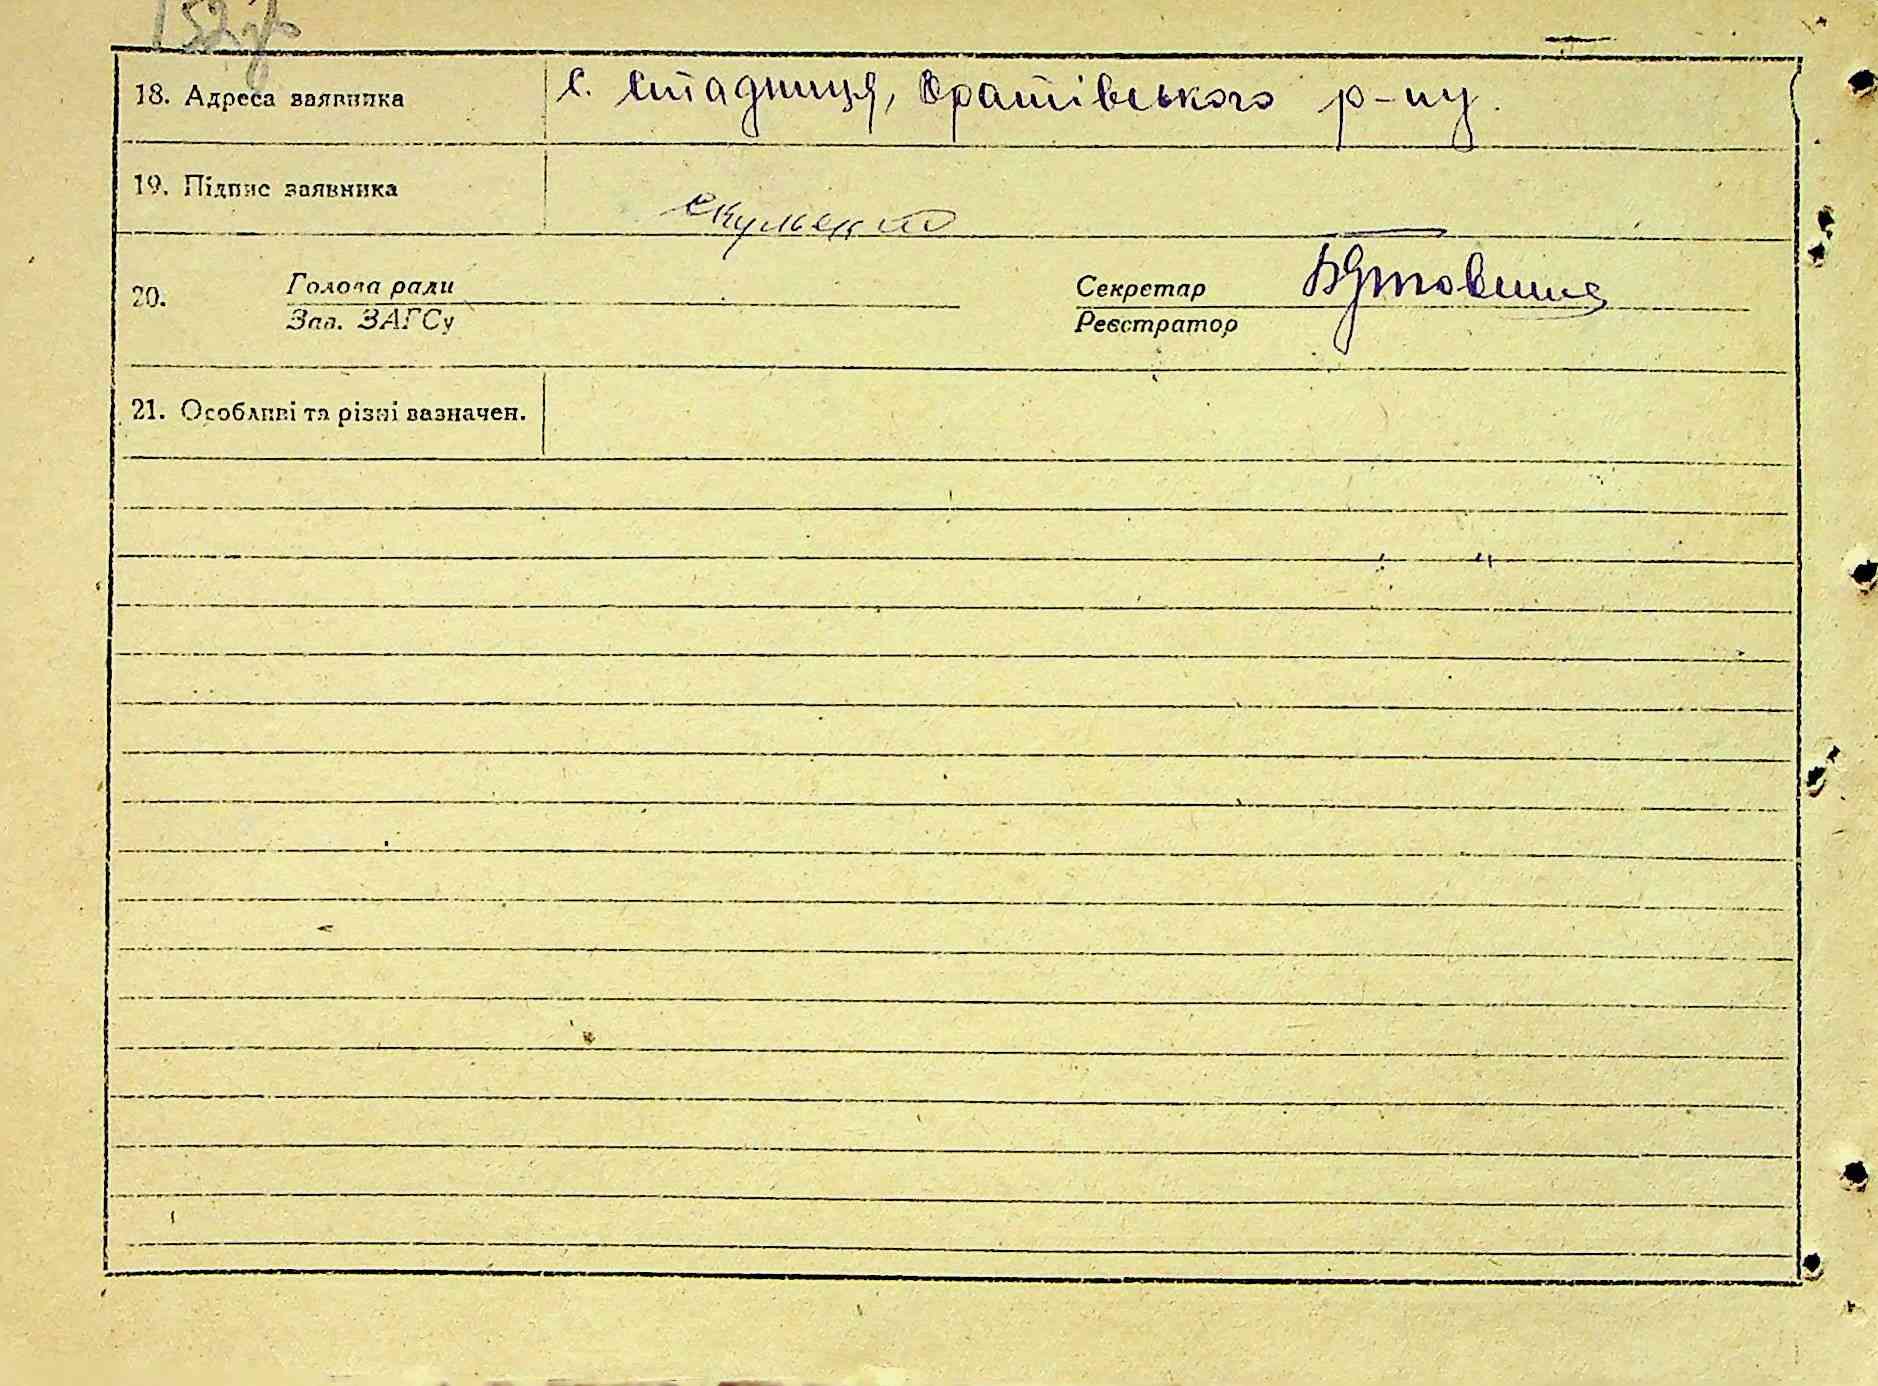 152
18. Адреса заявника с. Стадниця, Оратівського р-ну.
19. Підпис заявника
20. Голова ради Секретар
Зав. ЗАГСу Реєстратор
21. Особливі та різні зазначен.